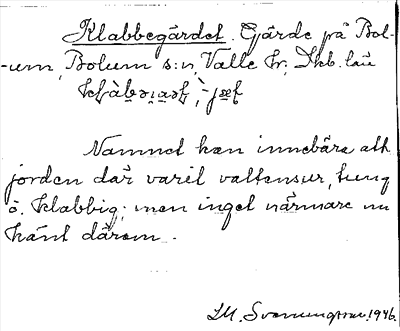 Klabbegärdet. Gärde på Bol-
-um, Bolum s:n, Valle hr, Skb. län
Namnet kan innebära att
jorden där varit vattensur, tung
o. klabbig; men inget närmare nu
känt därom.
M. Svenungsson 1946.